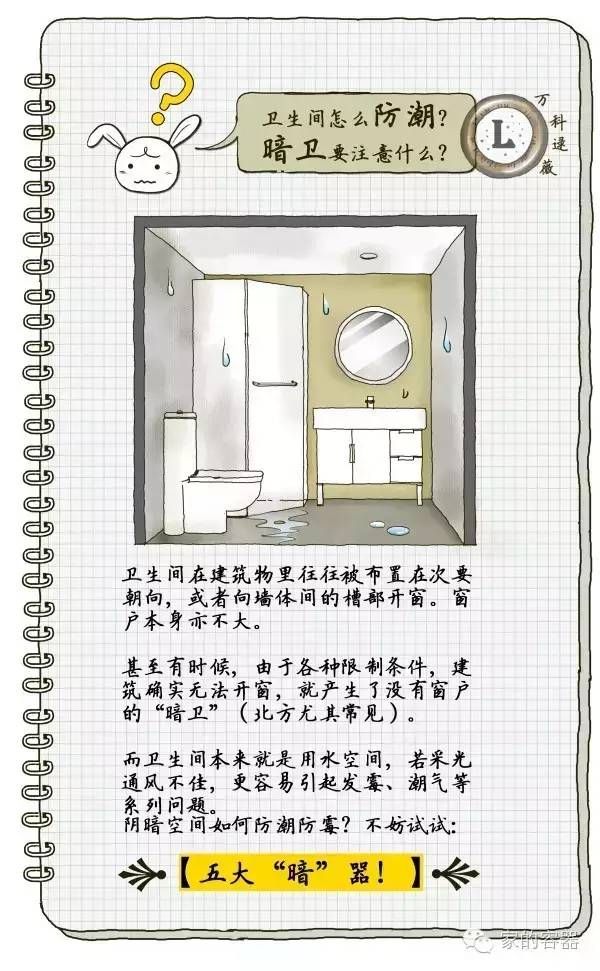 卫生间怎么防潮?
暗卫要注意什么?
L
万科逯薇
卫生间在建筑物里往往被布置在次要
朝向，或者向墙体间的槽部开窗。窗
户本身亦不大。
甚至有时候，由于各种限制条件，建
筑确实无法开窗，就产生了没有窗户
的“暗卫”（北方尤其常见）。
而卫生间本来就是用水空间，若采光
通风不佳，更容易引起发霉、潮气等
系列问题。
阴暗空间如何防潮防霉？不妨试试：
【五大“暗”器！】
家的容器